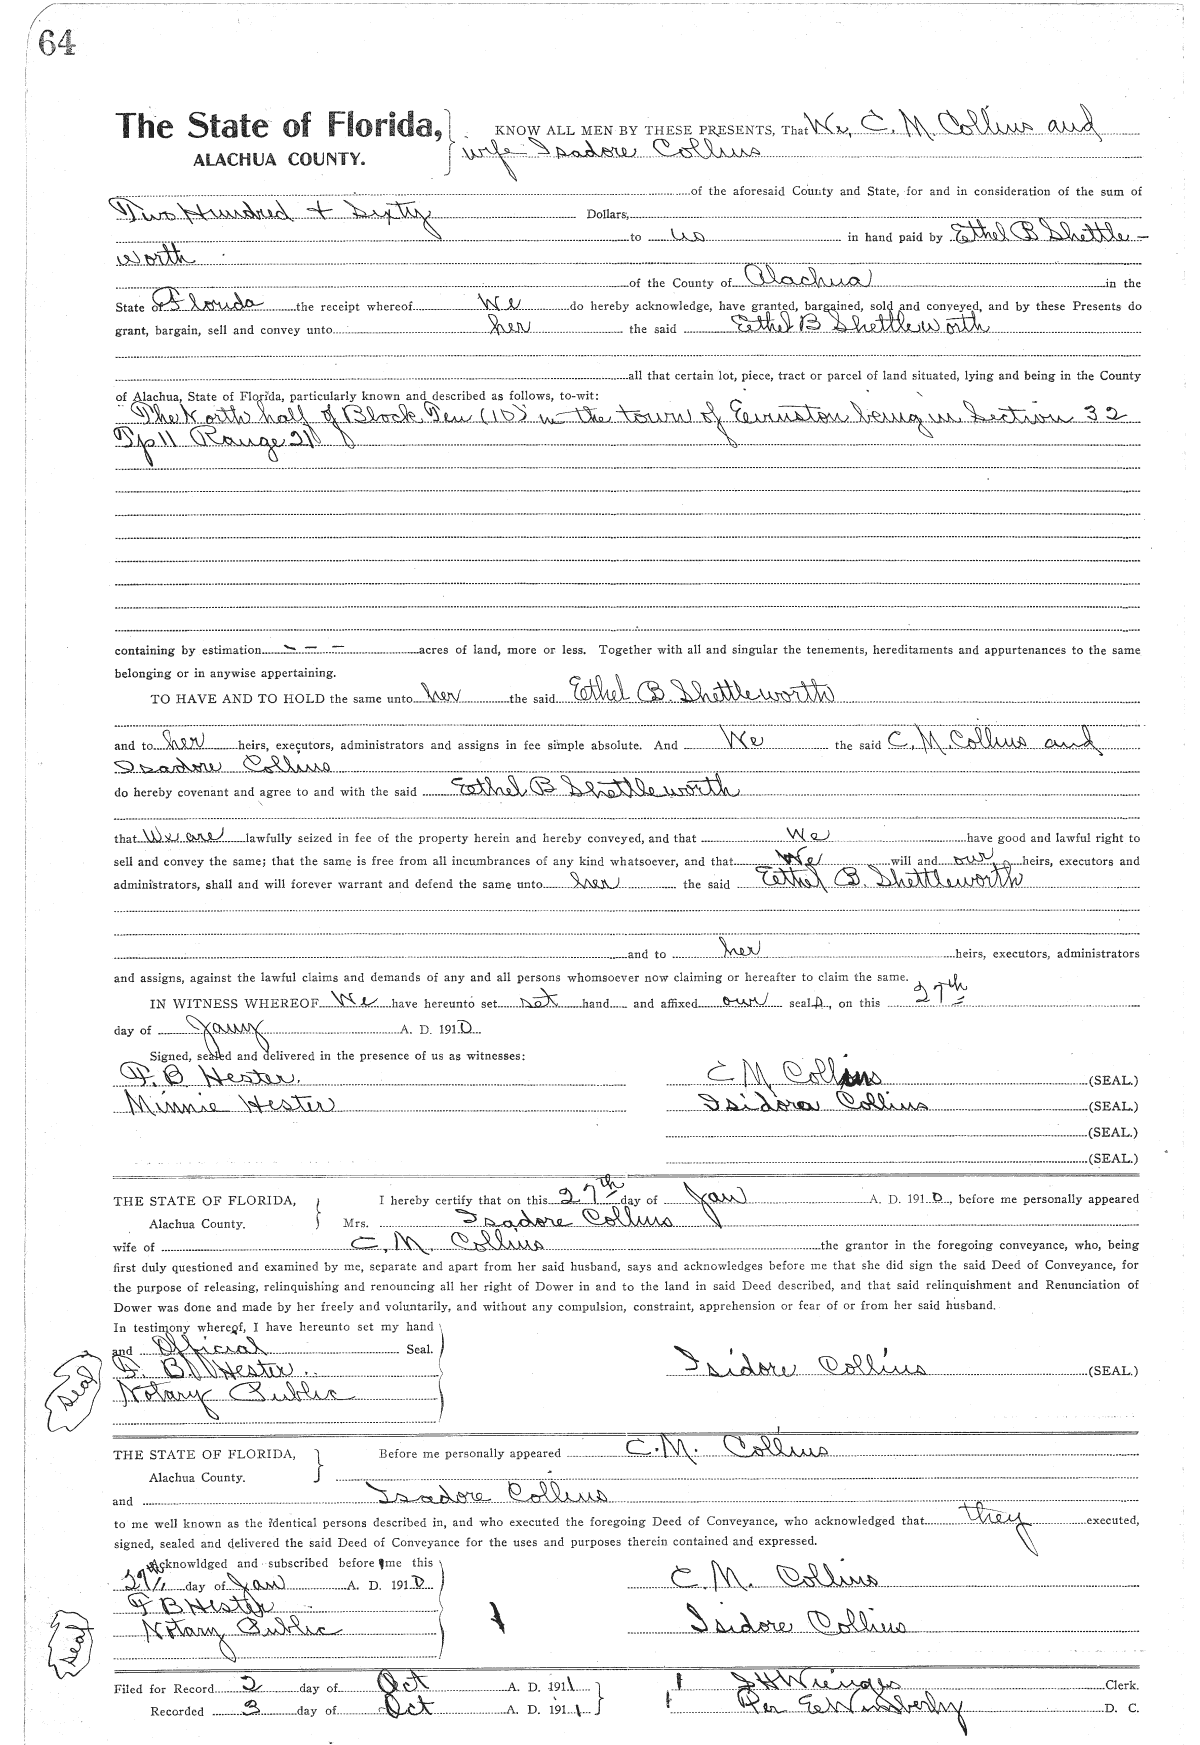 64
The State of Florida,
ALACHUA COUNTY.
KNOW ALL MEN BY THESE PRESENTS, That We, C. M. Collins and
wife Isadore Collins
of the aforesaid County and State, for and in consideration of the sum of
Two Hundred + Sixty Dollars,
to us in hand paid by Ethel B Shettle-
worth
of the County of Alachua in the
State of Florida the receipt whereof We do hereby acknowledge, have granted, bargained, sold and conveyed, and by these Presents do
grant, bargain, sell and convey unto her the said Eethel B Shettleworth
all that certain lot, piece, tract or parcel of land situated, lying and being in the County
of Alachua, State of Florida, particularly known and described as follows, to-wit:
The North half of Block Ten (10) in the town of Evinston being in Section 32
Tp 11 Range 21
containing by estimation - - - acres of land, more or less. Together with all and singular the tenements, hereditaments and appurtenances to the same
belonging or in anywise appertaining.
TO HAVE AND TO HOLD the same unto her the said Eethel B. Shettleworth
and to her heirs, executors, administrators and assigns in fee simple absolute. And We the said C. M. Collins and
Isadore Collins
do hereby covenant and agree to and with the said Eethel B Shettleworth
that We are lawfully seized in fee of the property herein and hereby conveyed, and that We have good and lawful right to
sell and convey the same; that the same is free from all incumbrances of any kind whatsoever, and that We will and our heirs, executors and
administrators, shall and will forever warrant and defend the same unto her the said Eethel B. Shettleworth
and to her heirs, executors, administrators
and assigns, against the lawful claims and demands of any and all persons whomsoever now claiming or hereafter to claim the same.
IN WITNESS WHEREOF We have hereunto set set hand and affixed our seals, on this 27th
day of Jany A. D. 1910
Signed, sealed and delivered in the presence of us as witnesses:
F. B Hester. C M Collins (SEAL.)
Minnie Hester Isidora Collins (SEAL.)
(SEAL.)
(SEAL.)
THE STATE OF FLORIDA,
Alachua County.
I hereby certify that on this 27th day of Jan A. D. 1910, before me personally appeared
Mrs. Isadore Collins
wife of C. M. Collins the grantor in the foregoing conveyance, who, being
first duly questioned and examined by me, separate and apart from her said husband, says and acknowledges before me that she did sign the said Deed of Conveyance, for
the purpose of releasing, relinquishing and renouncing all her right of Dower in and to the land in said Deed described, and that said relinquishment and Renunciation of
Dower was done and made by her freely and voluntarily, and without any compulsion, constraint, apprehension or fear of or from her said husband.
In testimony whereof, I have hereunto set my hand
and Official Seal.
F. B. Hester. Isidore Collins (SEAL)
Notary Public
Seal
THE STATE OF FLORIDA,
Alachua County.
Before me personally appeared C. M. Collins
and Isadore Collins
to me well known as the identical persons described in, and who executed the foregoing Deed of Conveyance, who acknowledged that they executed,
signed, sealed and delivered the said Deed of Conveyance for the uses and purposes therein contained and expressed.
Acknowldged and subscribed before me this
27th day of Jan A. D. 1910 C. M. Collins
F B Hester
Notary Public Isidore Collins
Seal
Filed for Record 2 day of Oct A. D. 1911 Clerk.
Recorded 3 day of Oct A. D. 1911 Per E Wimberly D. C.